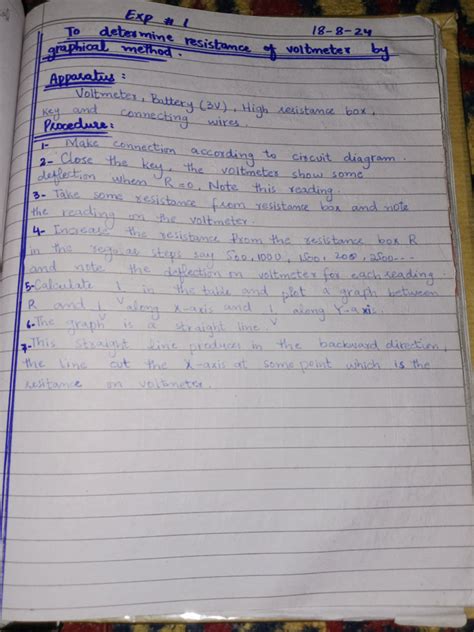 Exp # 1
18-8-24
To determine resistance of voltmeter by
graphical method.
Apparatus:
Voltmeter, Battery (3V), High resistance box,
key and connecting wires.
Procedure:
1- Make connection according to circuit diagram.
2- Close the key, the voltmeter show some
deflection when R=0, Note this reading.
3- Take some resistance from resistance box and note
the reading on the voltmeter.
4- Increase the resistance from the resistance box R
in the regular steps say 500, 1000, 1500, 2000, 2500---
and note the deflection on voltmeter for each reading.
5- Calculate 1/V in the table and plot a graph between
R and 1/V along x-axis and 1/V along Y-axis.
6- The graph is a straight line.
7- This straight line produces in the backward direction,
the line cut the x-axis at some point which is the
resitance on voltmeter.